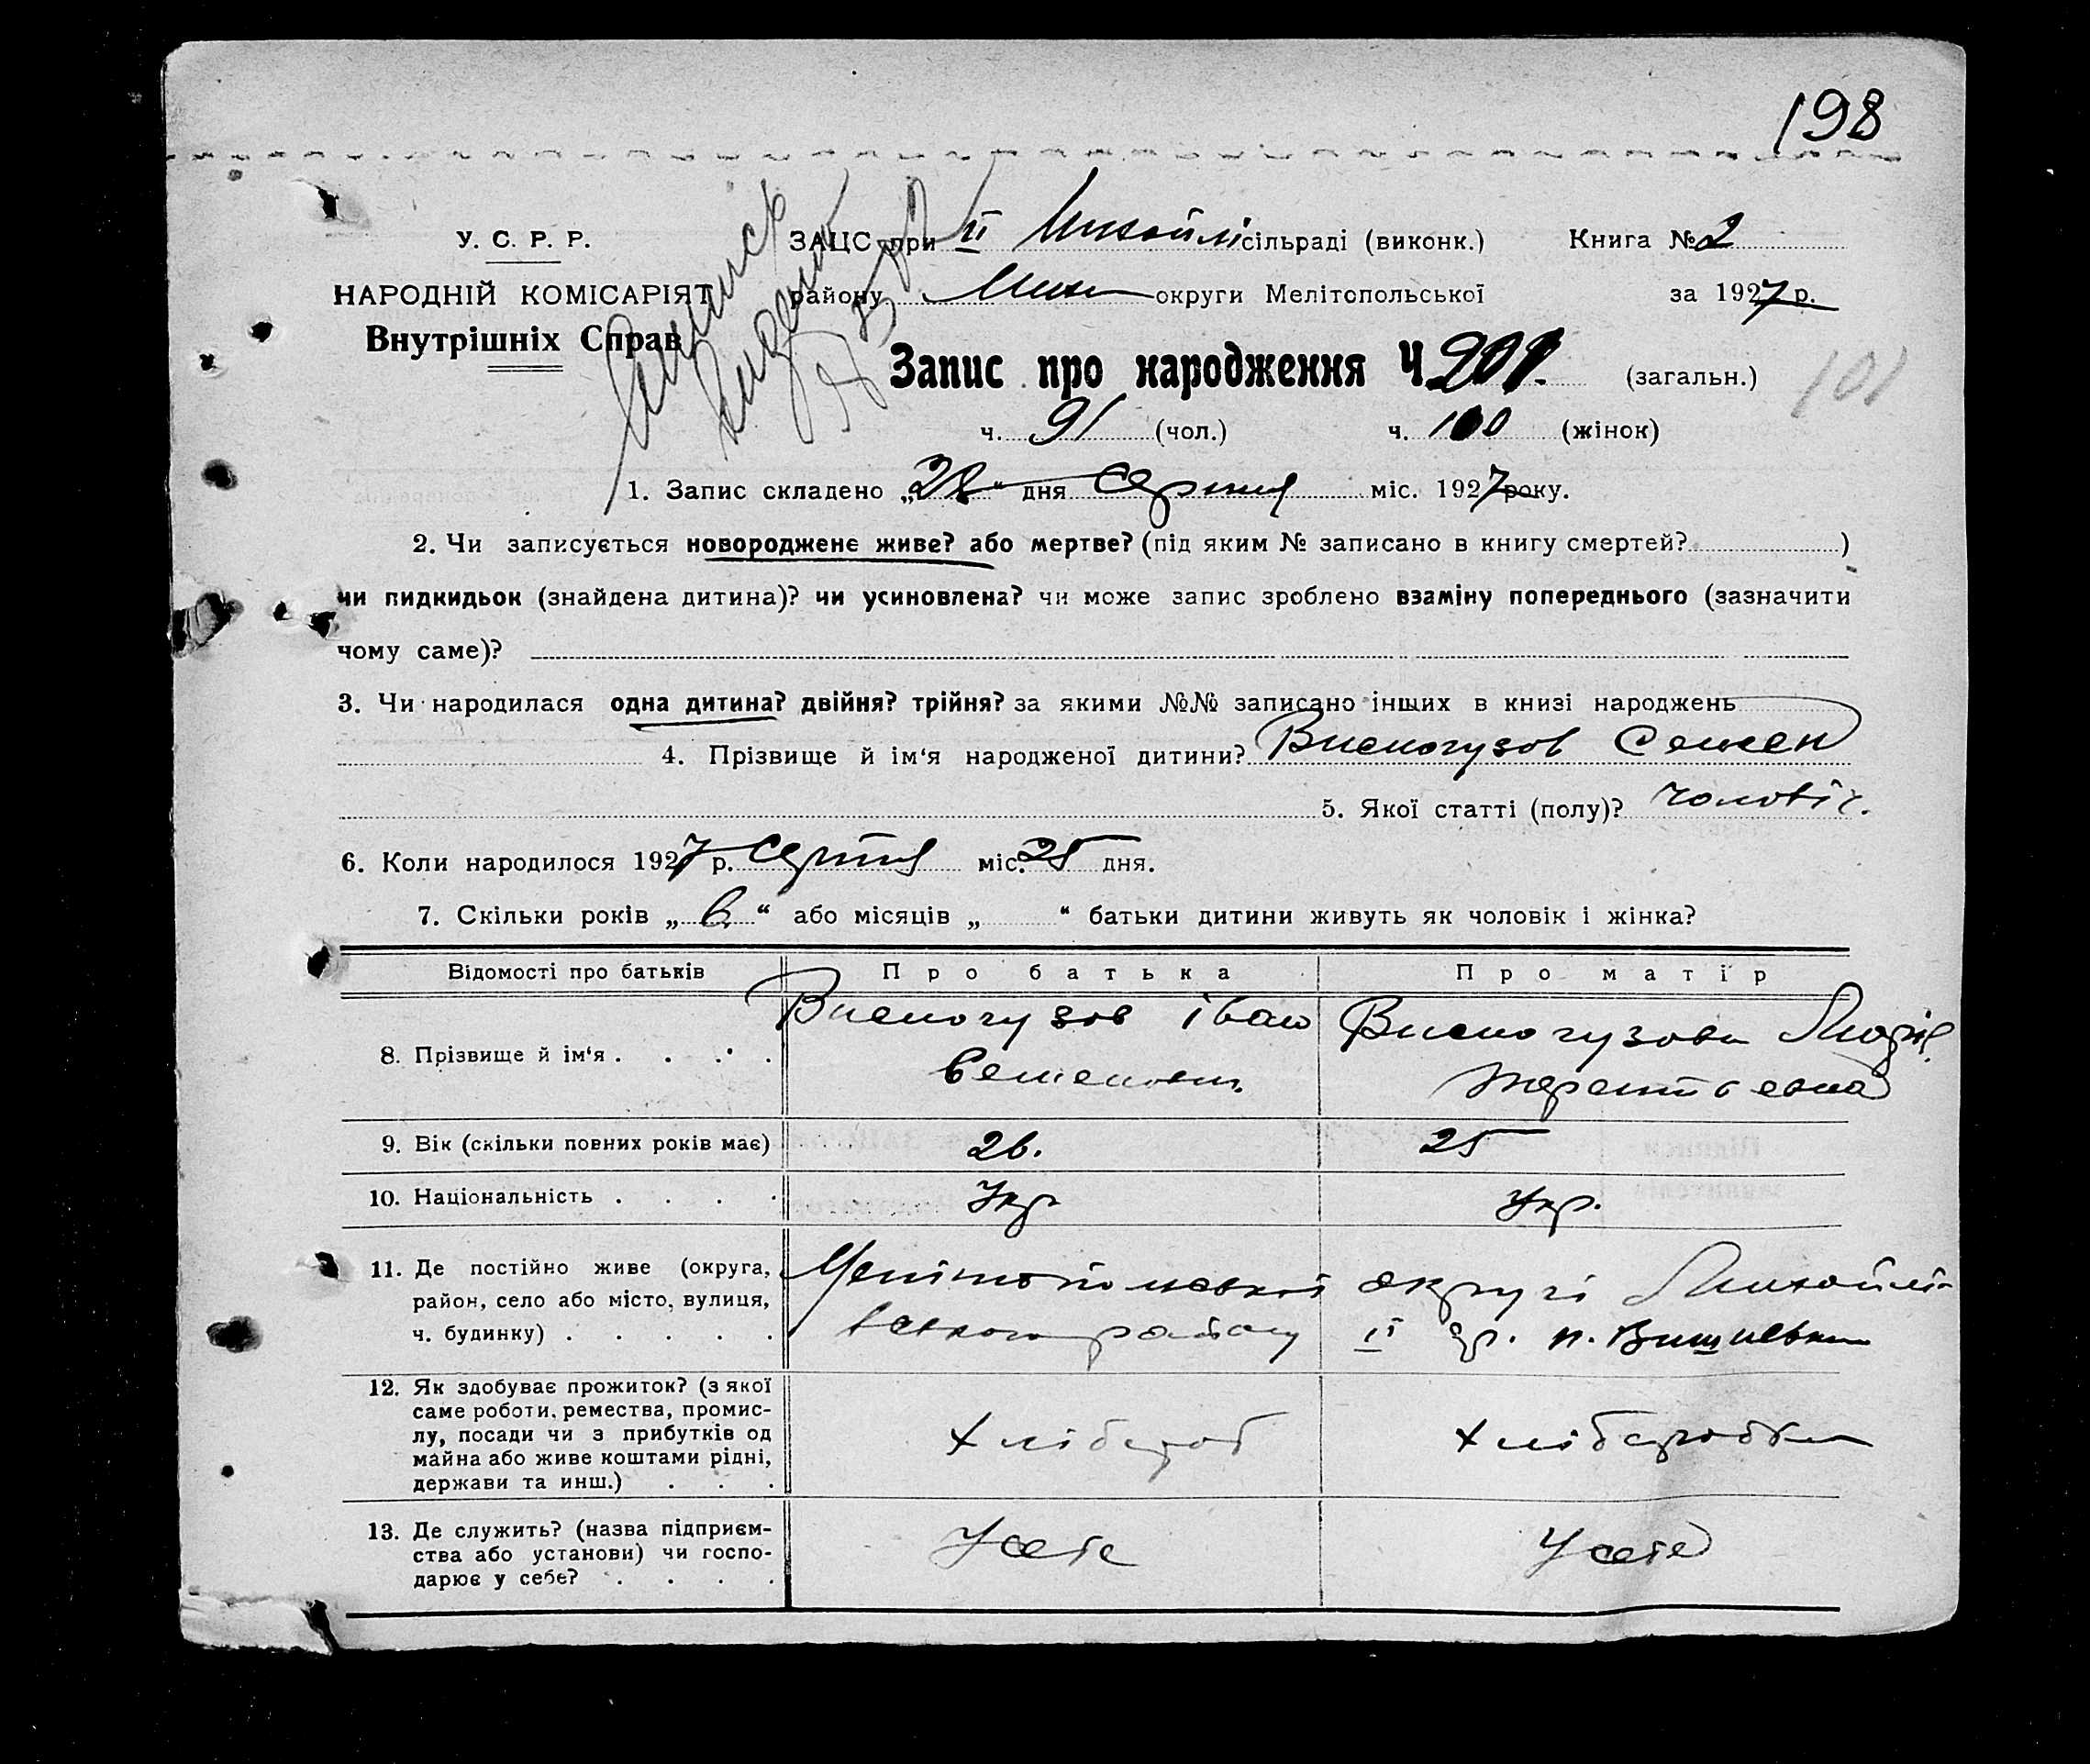 198
У. С. Р. Р.
НАРОДНІЙ КОМІСАРІЯТ
Внутрішніх Справ
ЗАЦС при ІІ Михайлі сільраді (виконк.) Книга № 2
району Мих округи Мелітопольської за 1927 р.
Запис про народження Ч. 201. (загальн.) 101
ч. 91 (чол.) ч. 100 (жінок)
1. Запис складено „28“ дня Серпня міс. 1927 року.
2. Чи записується новороджене живе? або мертве? (під яким № записано в книгу смертей? )
чи пидкидьок (знайдена дитина)? чи усиновлена? чи може запис зроблено взаміну попереднього (зазначити
чому саме)?
3. Чи народилася одна дитина? двійня? трійня? за якими №№ записано інших в книзі народжень
4. Прізвище й ім‘я народженої дитини? Висногузов Семен
5. Якої статті (полу)? чоловіч.
6. Коли народилося 1927 р. Серпня міс. 25 дня.
7. Скільки років „6“ або місяців „ “ батьки дитини живуть як чоловік і жінка?
Відомості про батьків Про батька Про матір
8. Прізвище й ім‘я Висногузов Іван Висногузова
Семенов.
9. Вік (скільки повних років має) 26. 25
10. Національність Укр Укр.
11. Де постійно живе (округа, район, село або місто, вулиця, ч. будинку) Мелітопольської округі Михайлів
вського району ІІ
12. Як здобуває прожиток? (з якої саме роботи, ремества, промислу, посади чи з прибутків од майна або живе коштами рідні, держави та инш.) Хлібороб Хліборобка
13. Де служить? (назва підприємства або установи) чи господарює у себе? У себе У себе